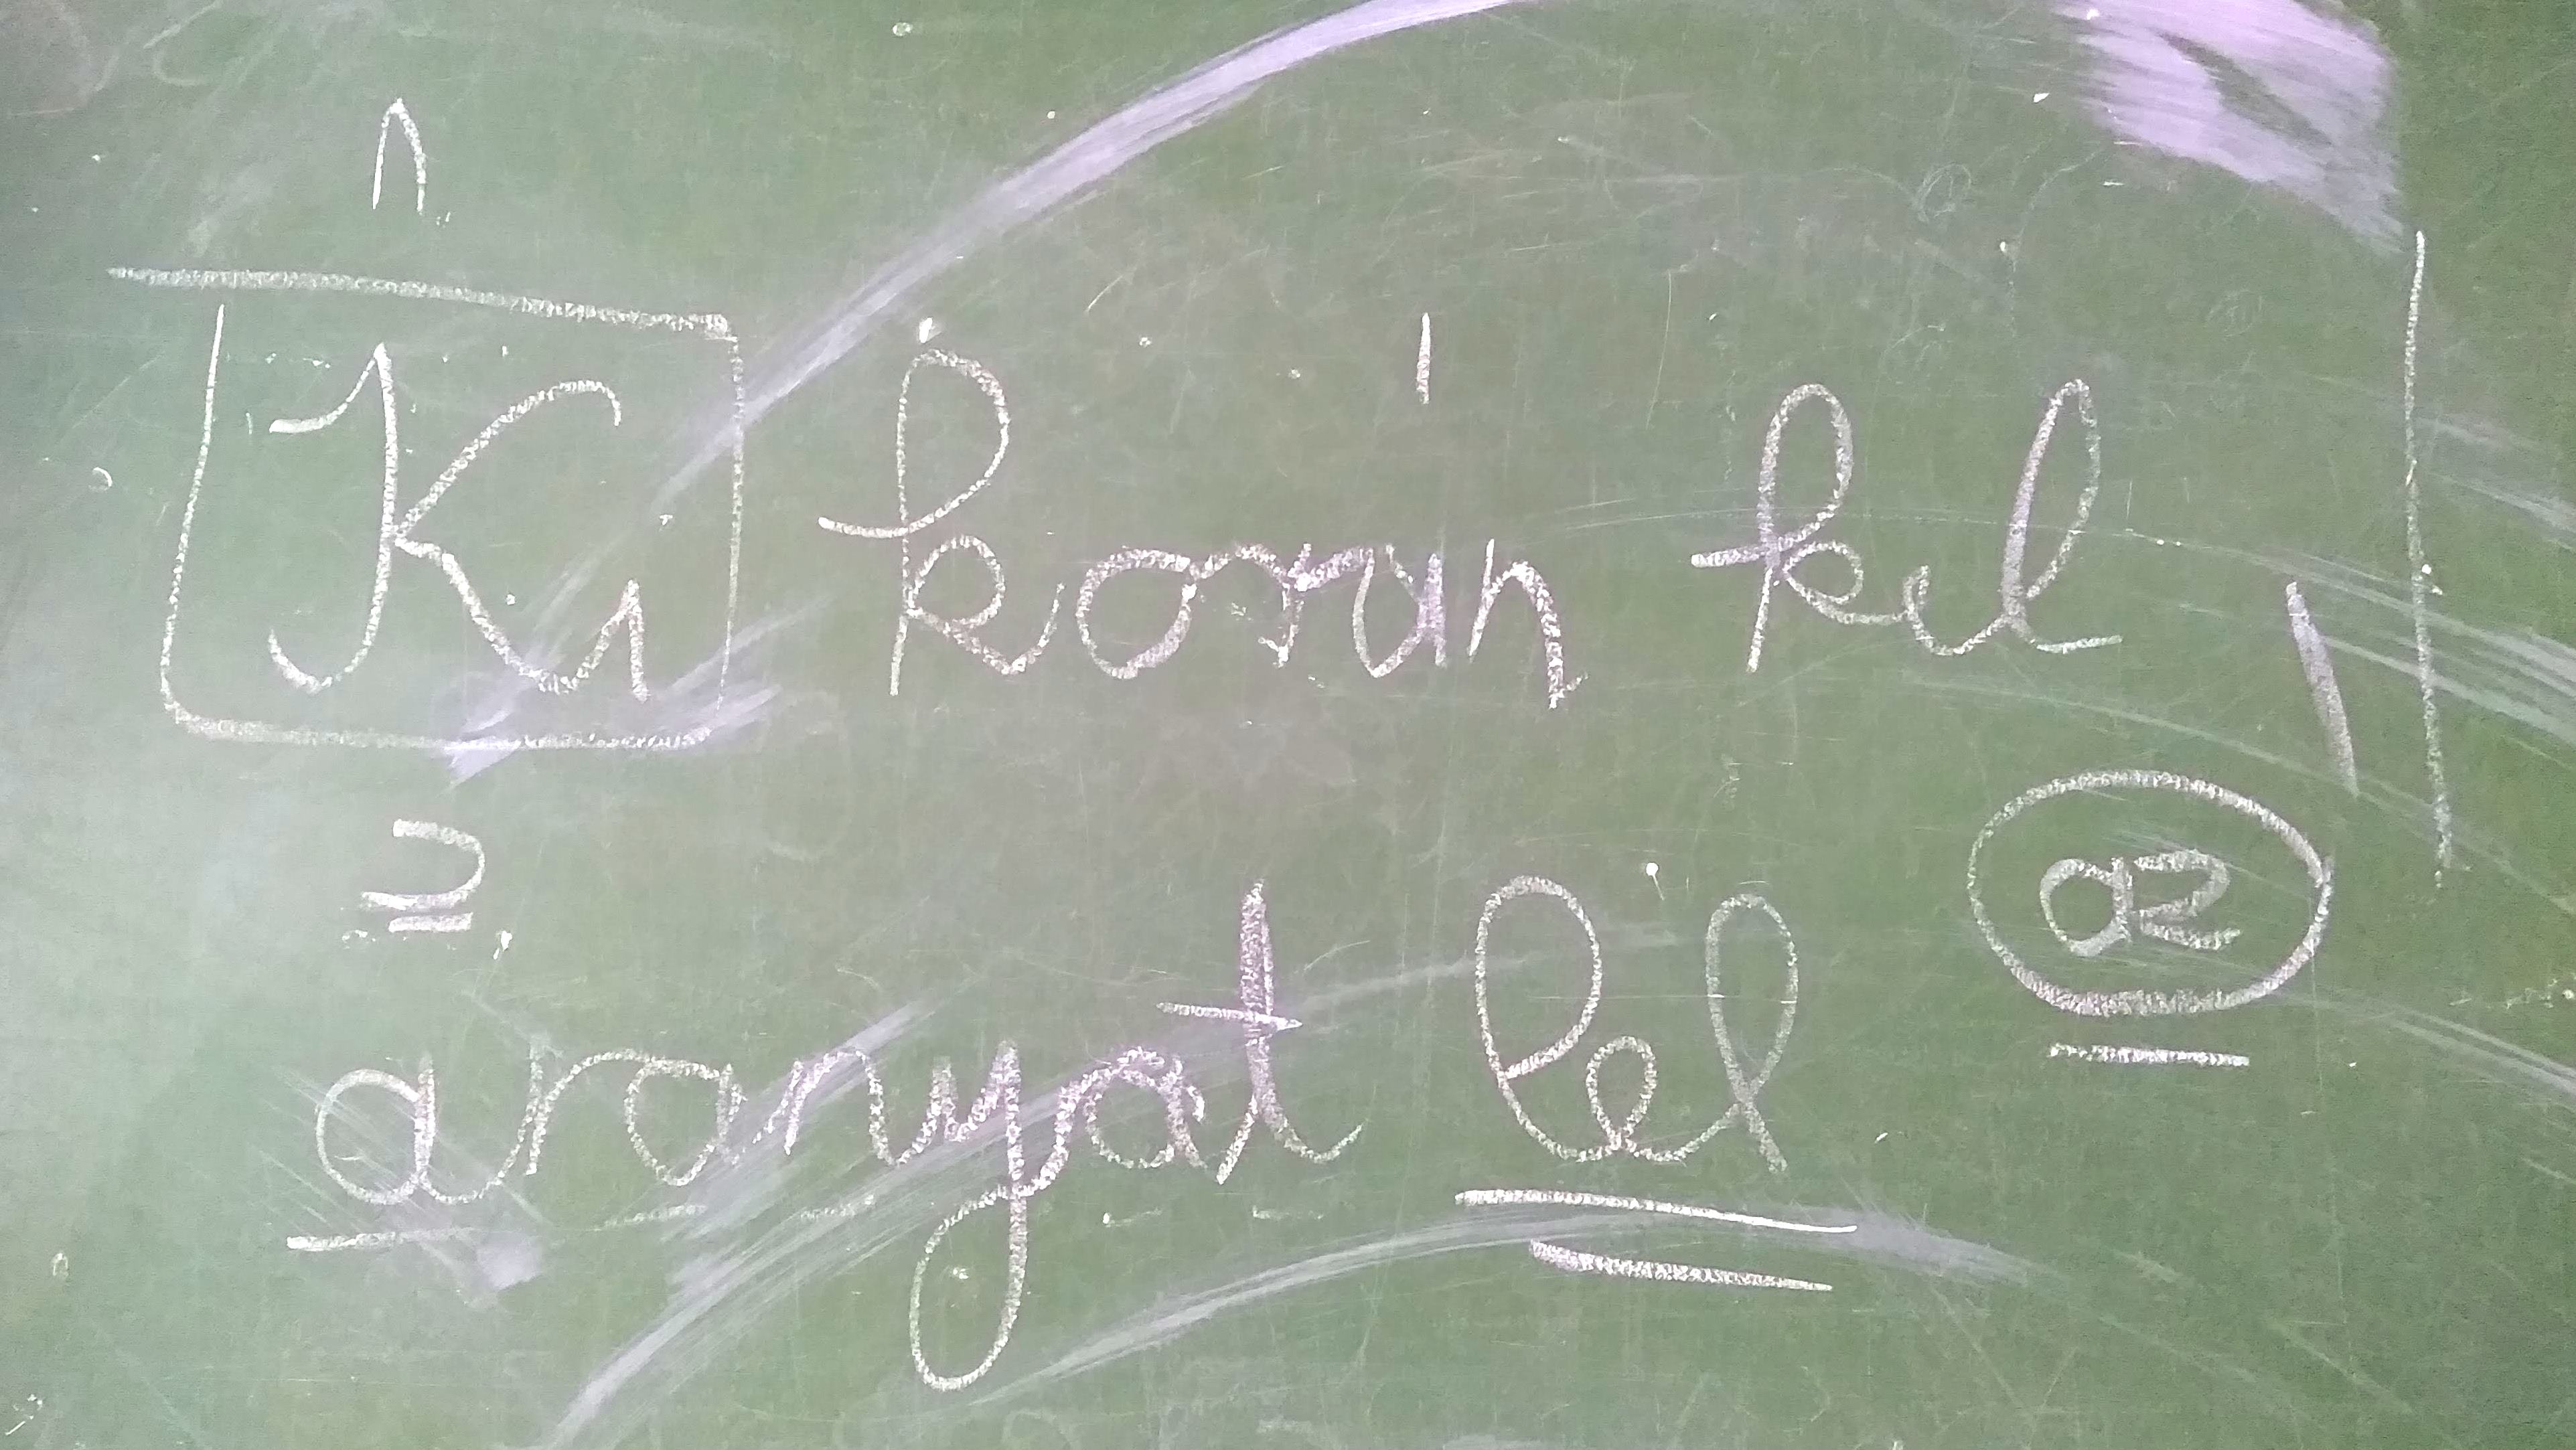 Ki korán kel,
az
aranyat lel